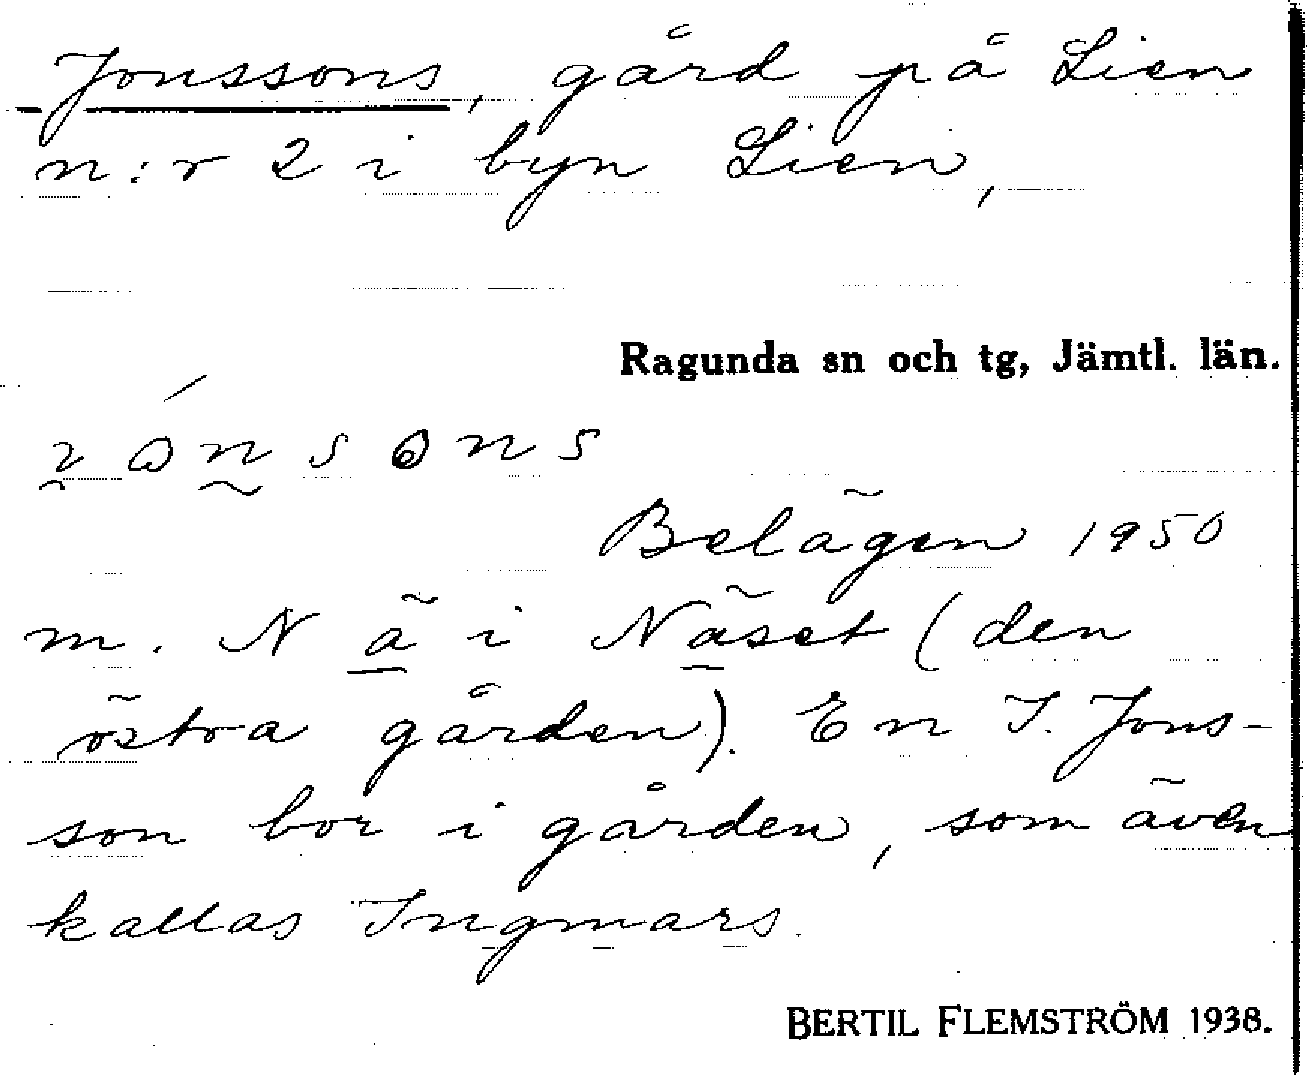 Jonssons, gård på Lien
n:r 2 i byn Lien,
Ragunda sn och tg, Jämtl. län.
Belägen 1950
m. N ä i Näset (den
östra gården). En I. Jons-
son bor i gården, som även
kallas Ingmars.
BERTIL FLEMSTRÖM 1938.